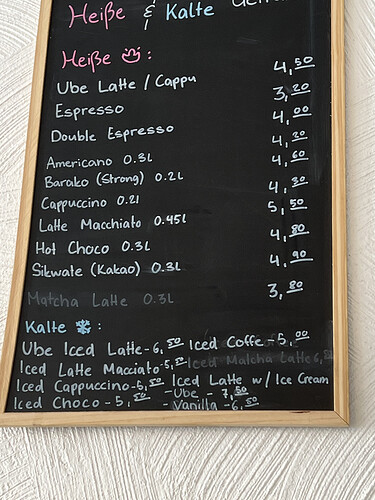 Heiße & Kalte
Heiße :
Ube Latte / Cappu 4,50
Espresso 3,20
Double Espresso 4,00
Americano 0.3L 4,20
Barako (Strong) 0.2L 4,60
Cappuccino 0.2l 4,30
Latte Macchiato 0.45L 5,50
Hot Choco 0.3L 4,80
Sikwate (Kakao) 0.3L 4,90
Matcha Latte 0.3L 3,80
Kalte :
Ube Iced Latte - 6,50 Iced Coffe - 5,00
Iced Latte Macciato - 5,50 Iced Matcha Latte 6,
Iced Cappuccino - 6,50 Iced Latte w/ Ice Cream
Iced Choco - 5,50 - Ube - 7,50
- Vanilla - 6,50